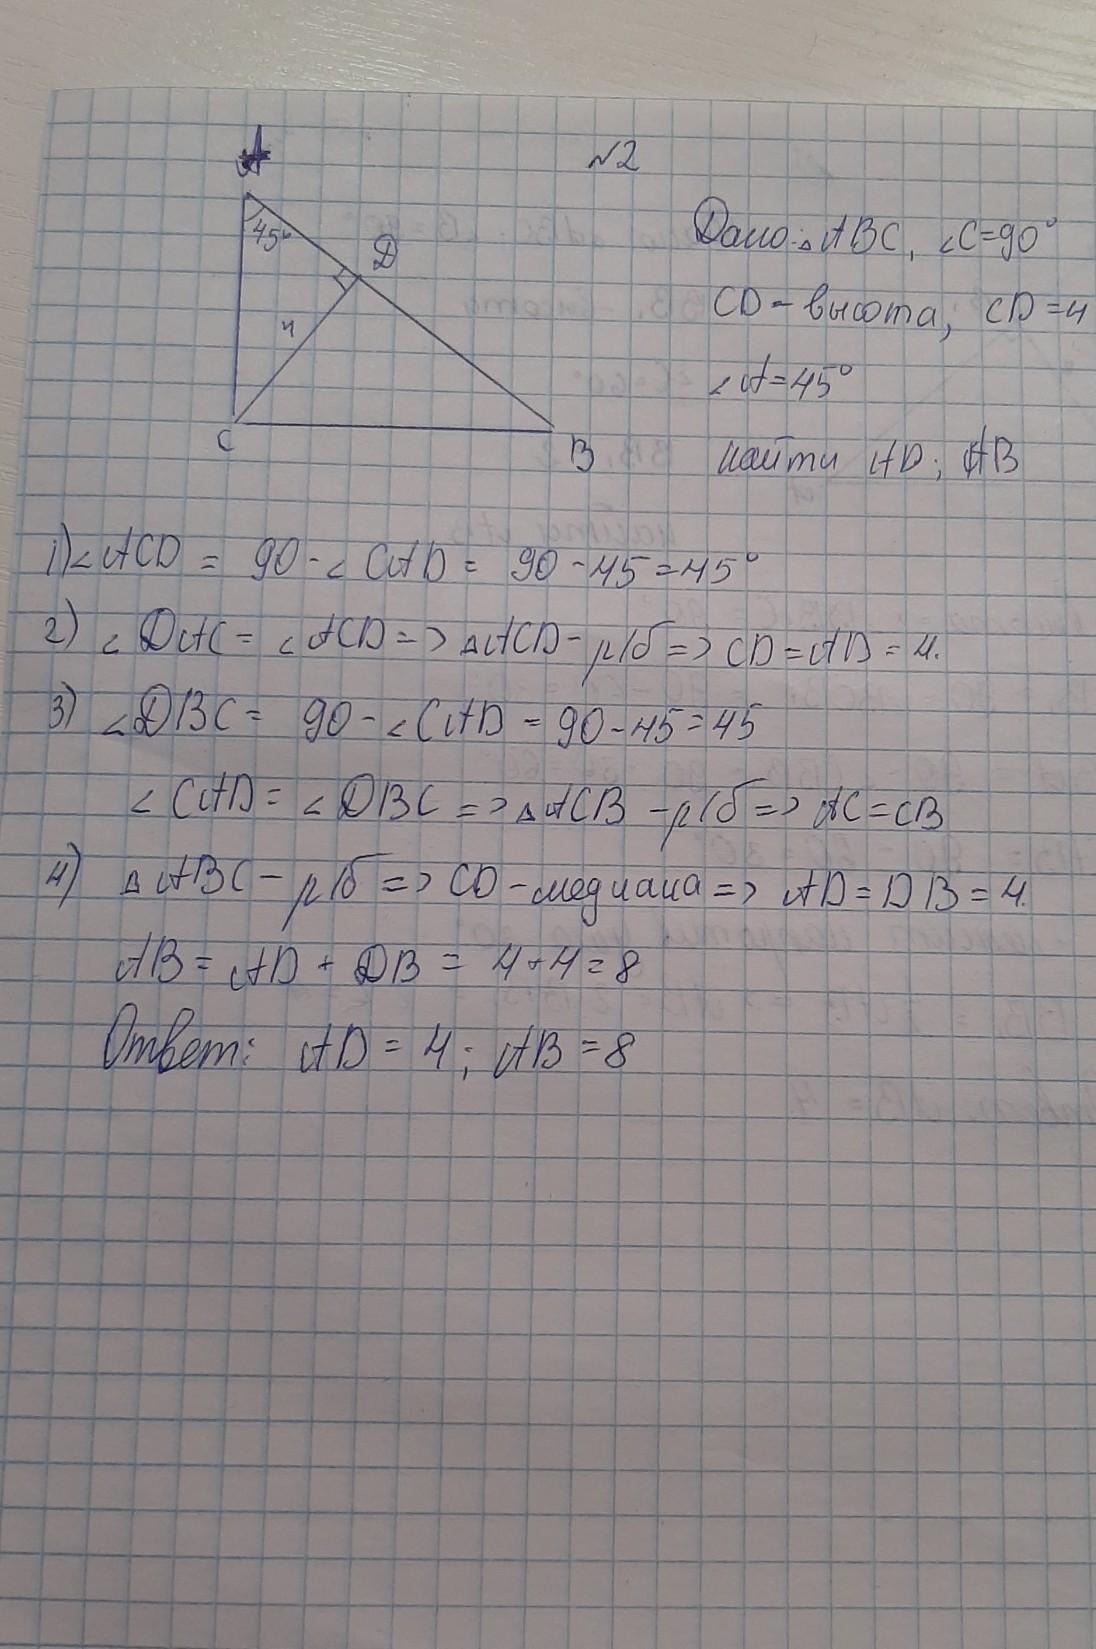 №2
A
45°
D
4
C
B
Дано: △ABC, ∠C=90°
CD - высота, CD=4
∠A=45°
найти AD; AB
1) ∠ACD = 90 - ∠CAD = 90 - 45 = 45°
2) ∠DAC = ∠ACD => △ACD - р/б => CD = AD = 4.
3) ∠DBC = 90 - ∠CAD = 90 - 45 = 45
∠CAD = ∠DBC => △ACB - р/б => AC = CB
4) △ABC - р/б => CD - медиана => AD = DB = 4.
AB = AD + DB = 4 + 4 = 8
Ответ: AD = 4; AB = 8